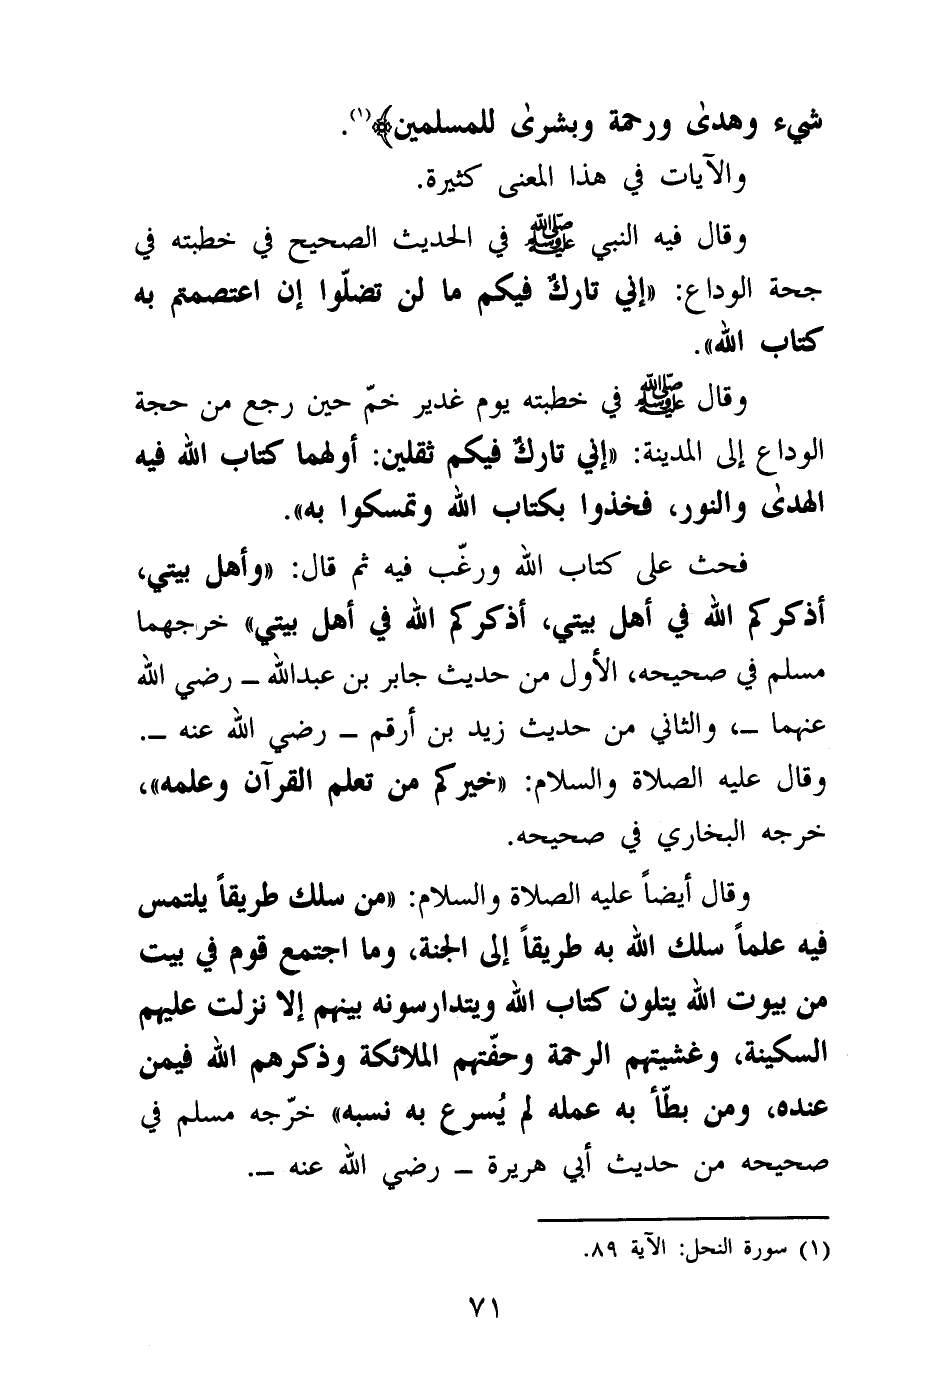 شيء وهدىٰ ورحمة وبشرىٰ للمسلمين﴾(١).
والآيات في هذا المعنى كثيرة.
وقال فيه النبي ﷺ في الحديث الصحيح في خطبته في
جحة الوداع: «إني تاركٌ فيكم ما لن تضلّوا إن اعتصمتم به
كتاب الله».
وقال ﷺ في خطبته يوم غدير خمّ حين رجع من حجة
الوداع إلى المدينة: «إني تاركٌ فيكم ثقلين: أولهما كتاب الله فيه
الهدىٰ والنور، فخذوا بكتاب الله وتمسكوا به».
فحث على كتاب الله ورغّب فيه ثم قال: «وأهل بيتي،
أذكركم الله في أهل بيتي، أذكركم الله في أهل بيتي» خرجهما
مسلم في صحيحه، الأول من حديث جابر بن عبدالله ـ رضي الله
عنهما ـ، والثاني من حديث زيد بن أرقم ـ رضي الله عنه ـ.
وقال عليه الصلاة والسلام: «خيركم من تعلم القرآن وعلمه»،
خرجه البخاري في صحيحه.
وقال أيضاً عليه الصلاة والسلام: «من سلك طريقاً يلتمس
فيه علماً سلك الله به طريقاً إلى الجنة، وما اجتمع قوم في بيت
من بيوت الله يتلون كتاب الله ويتدارسونه بينهم إلا نزلت عليهم
السكينة، وغشيتهم الرحمة وحفّتهم الملائكة وذكرهم الله فيمن
عنده، ومن بطّأ به عمله لم يُسرع به نسبه» خرّجه مسلم في
صحيحه من حديث أبي هريرة ـ رضي الله عنه ـ.
(١) سورة النحل: الآية ٨٩.
٧١